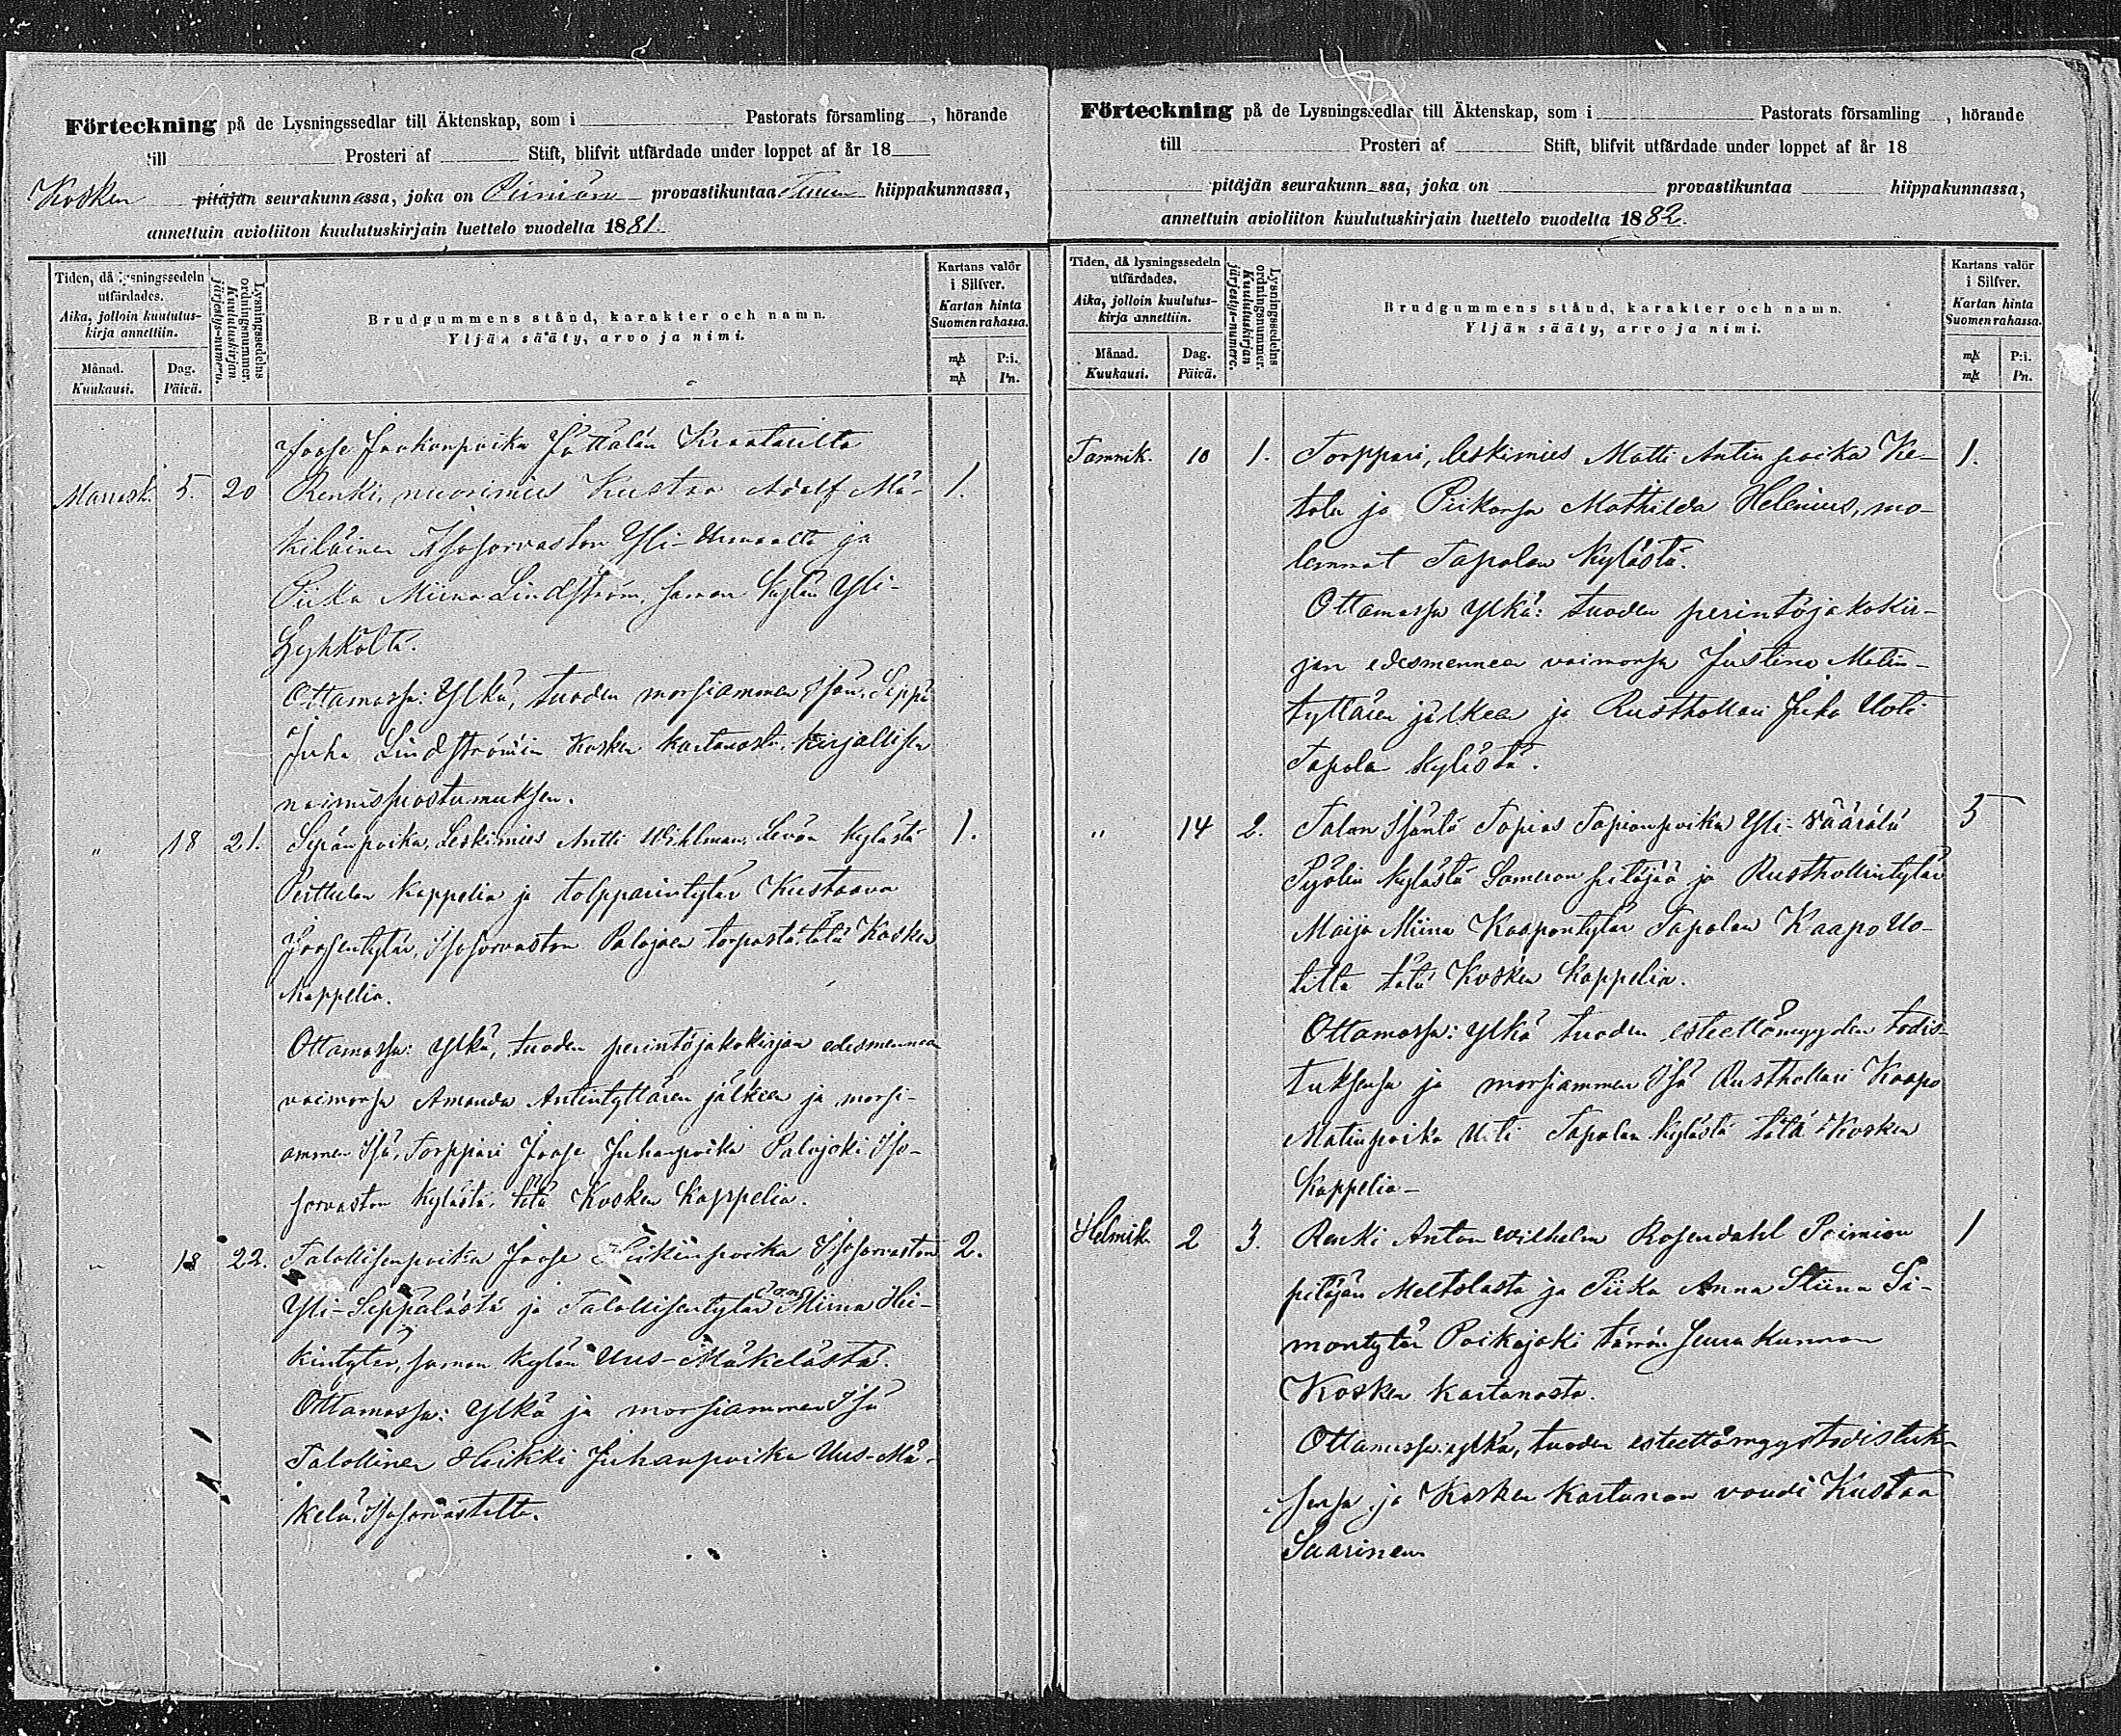 Förteckning på de Lysningssedlar till Äktenskap, som i Pastorats församling, hörande
till Prosteri af Stift, blifvit utfärdade under loppet af år 18
Kosken pitäjän seurakunnassa, joka on Piimiön provastikuntaa Turun hiippakunnassa,
annettuin avioliiton kuulutuskirjain luettelo vuodelta 1881.
Tiden, då lysningssedeln utfärdades.
Aika, jolloin kuulutus-kirja annettiin.
Månad. Kuukausi.
Dag. Päivä.
Lysningssedelns ordningsnummer.
Kuulutuskirjan järjestys-numero.
Brudgummens stånd, karakter och namn.
Yljän sääty, arvo ja nimi.
Kartans valör i Silfver.
Kartan hinta Suomen rahassa.
mk P:i.
mk Pn.
Joose Jaakonpoika
Marrask. 5. 20 Renki, nuorimies Kustaa Adolf Mä- 1.
kiläinen Isosorvaston Yli- ja
Piika Miina Lindström, saman kylän Yli-
Ottamassa: Ylkä, tuoden morsiammen Isän, Seppä
Juha Lindströmin Kosken kartanosta, kirjallisen
naimissuostumuksen.
" 18 21. Sepänpoika, Leskimies Antti Wihlman, Levän kylästä 1.
Perttulan kappelia ja tolpparintytär Kustaava
Joosentytär, Isosorvaston Palojoen torpasta, tätä Kosken
kappelia.
Ottamassa: Ylkä, tuoden perintöjakokirjan edesmennen
vaimonsa Amanda Antintyttären jälkeen ja morsi-
ammen Isä, Torppari Joose Juhanpoika Palojoki Iso-
sorvaston kylästä, tätä Kosken kappelia.
" 18 22. Talollisenpoika Joose Heikinpoika Isosorvaston 2.
Yli-Seppälästä ja Talollisentytär Miina Hei-
kintytär, saman kylän Uus-Mäkelästä.
Ottamassa: Ylkä ja morsiammen Isä
Talollinen Heikki Juhanpoika Uus-Mä-
kelä, Isosorvastolta.
Förteckning på de Lysningssedlar till Äktenskap, som i Pastorats församling, hörande
till Prosteri af Stift, blifvit utfärdade under loppet af år 18
pitäjän seurakunn ssa, joka on provastikuntaa hiippakunnassa,
annettuin avioliiton kuulutuskirjain luettelo vuodelta 1882.
Tiden, då lysningssedeln utfärdades.
Aika, jolloin kuulutus-kirja annettiin.
Månad. Kuukausi.
Dag. Päivä.
Lysningssedelns ordningsnummer.
Kuulutuskirjan järjestys-numero.
Brudgummens stånd, karakter och namn.
Yljän sääty, arvo ja nimi.
Kartans valör i Silfver.
Kartan hinta Suomen rahassa.
mk P:i.
mk Pn.
Tammik. 10 1. Torppari, leskimies Matti Antin poika Ke- 1.
tola ja Piikansa Mathilda Helenius, mo-
lemmat Tapolan kylästä.
Ottamassa Ylkä: tuoden perintöjakokir-
jan edesmennen vaimonsa Justina Matin-
tyttären jälkeen ja Rusthollari Juha Uoti
Tapola kylästä.
" 14 2. Talon Isäntä Topias Topianpoika Yli-Väärälä 5
Pyölin kylästä Someron pitäjää ja Rusthollintytär
Maija Miina Kaapontytär Tapolan Kaapo Uo-
tilta tätä Kosken kappelia.
Ottamassa: Ylkä tuoden esteettömyyden todis-
tuksensa ja morsiammen Isä Rusthollari Kaapo
Matinpoika Uoti Tapolan kylästä tätä Kosken
kappelia-
Helmik. 2 3. Renki Anton Wilhelm Rosendahl Poimion 1
pitäjän Meltolasta ja Piika Anna Stiina Si-
montytär Poikojoki tämän seurakunnan
Kosken kartanosta.
Ottamassa: ylkä, tuoden esteettömyystodistuk-
sensa ja Kosken kartanon voudi Kustaa
Saarinen